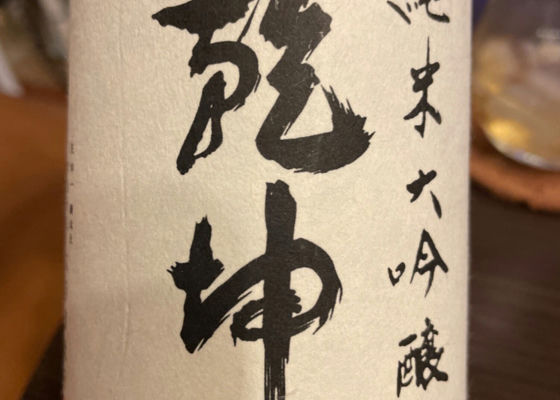 乾坤
純米大吟醸